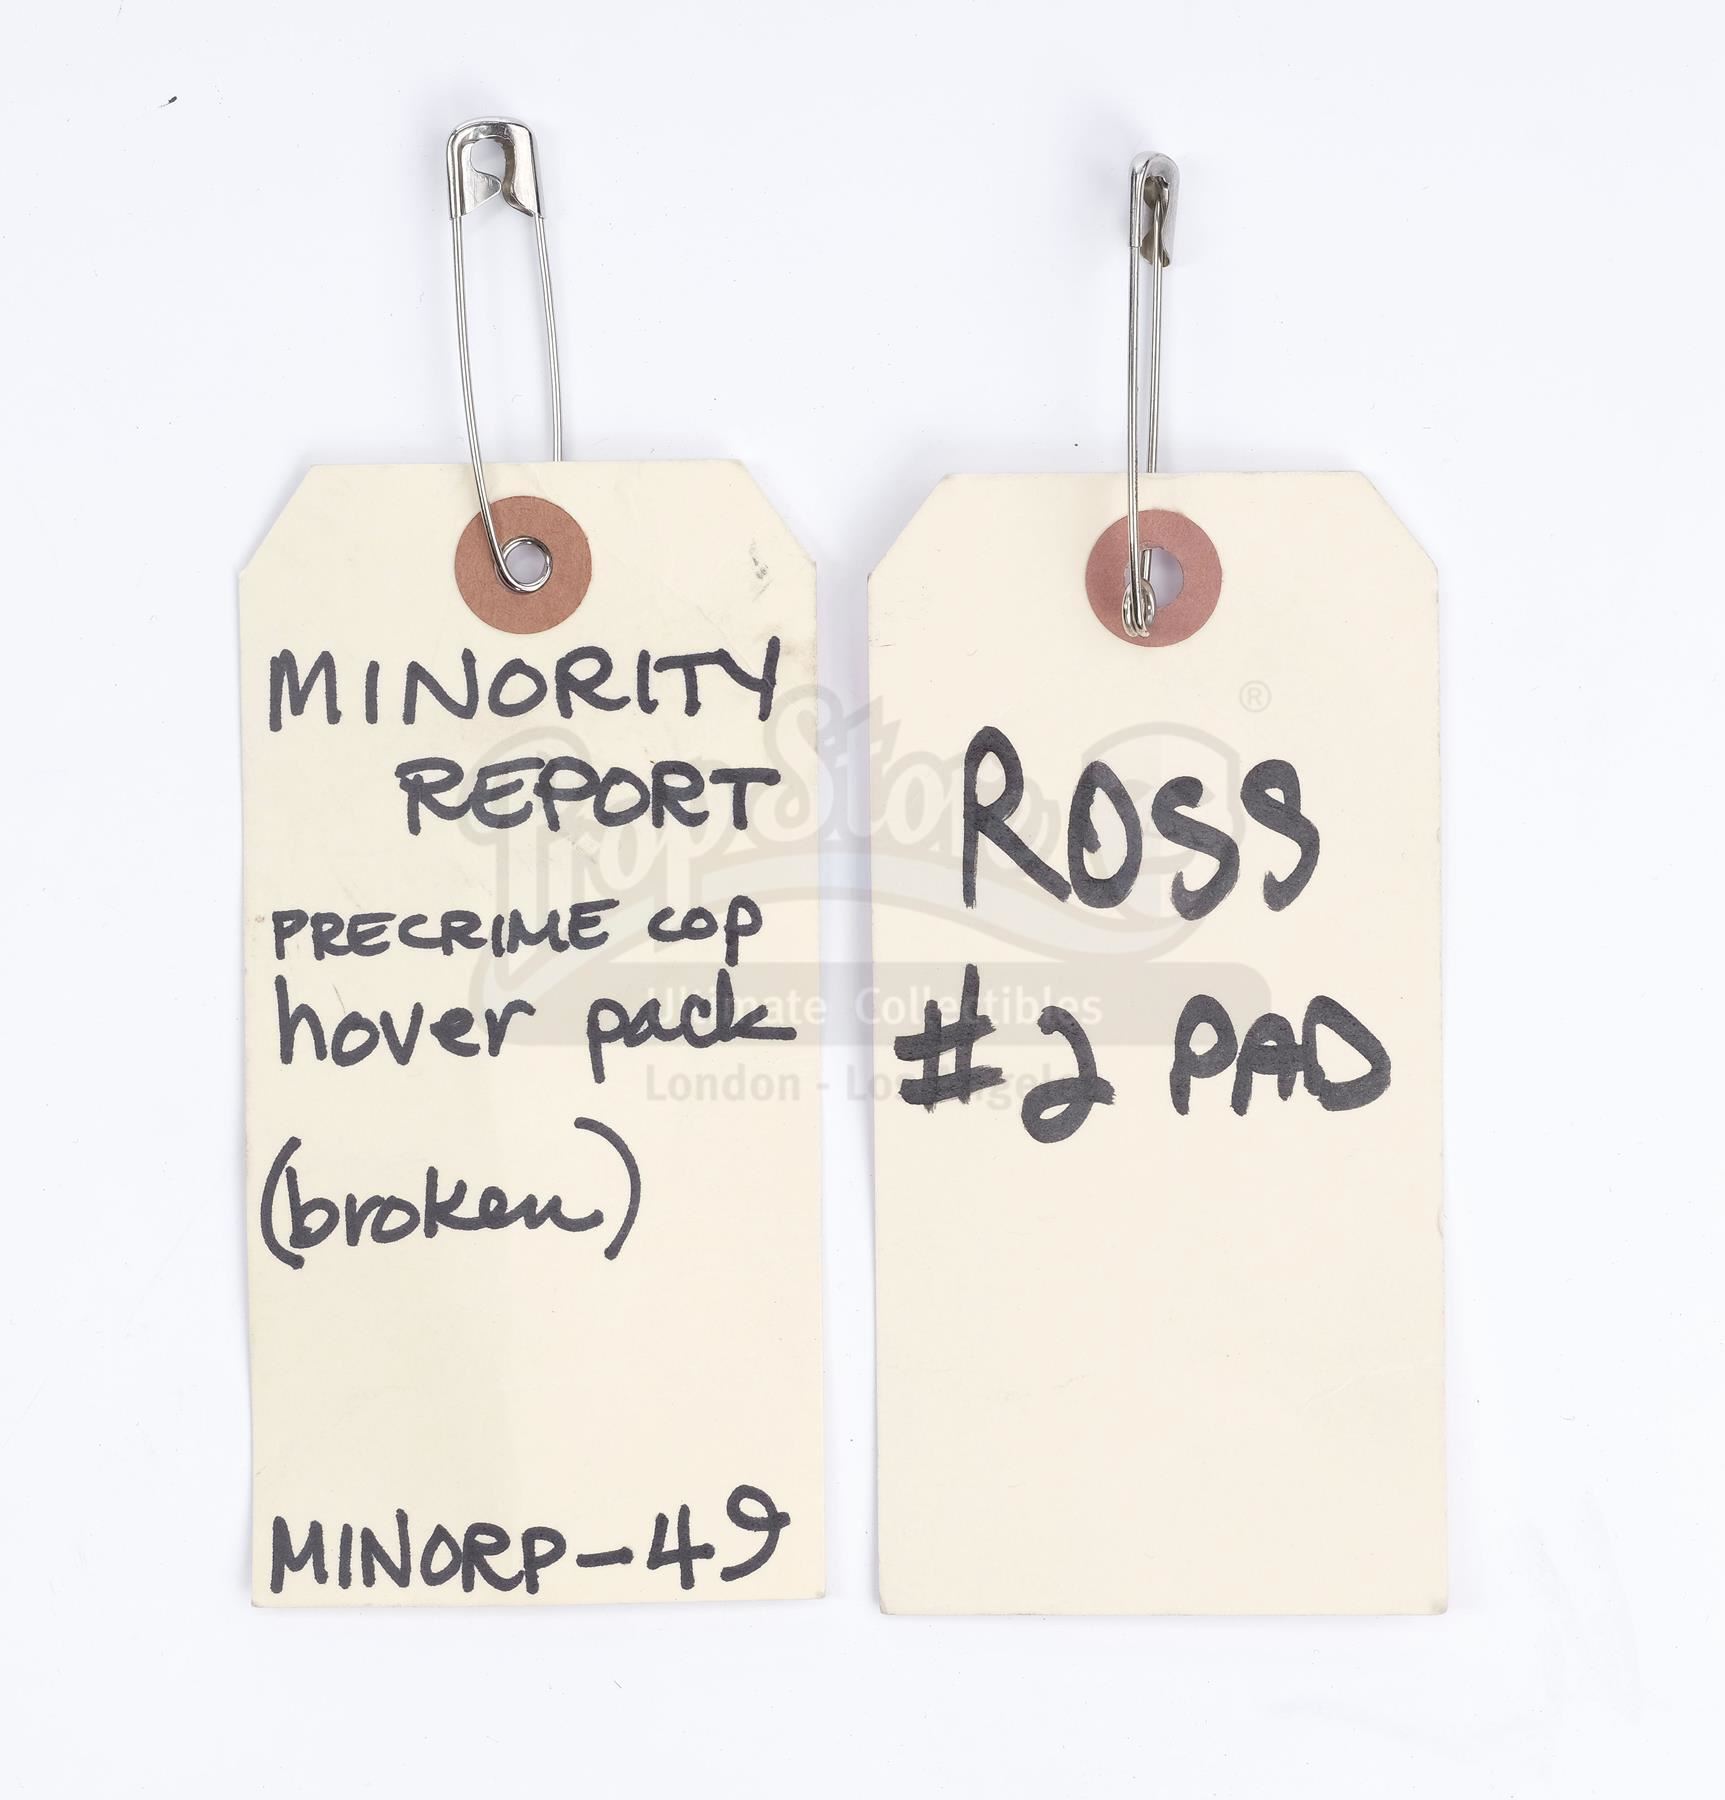 MINORITY
REPORT
PRECRIME COP
hover pack
(broken)
MINORP-49
ROSS
#2 PAD
Prop Store
®
Ultimate Collectibles
London - Los Angeles